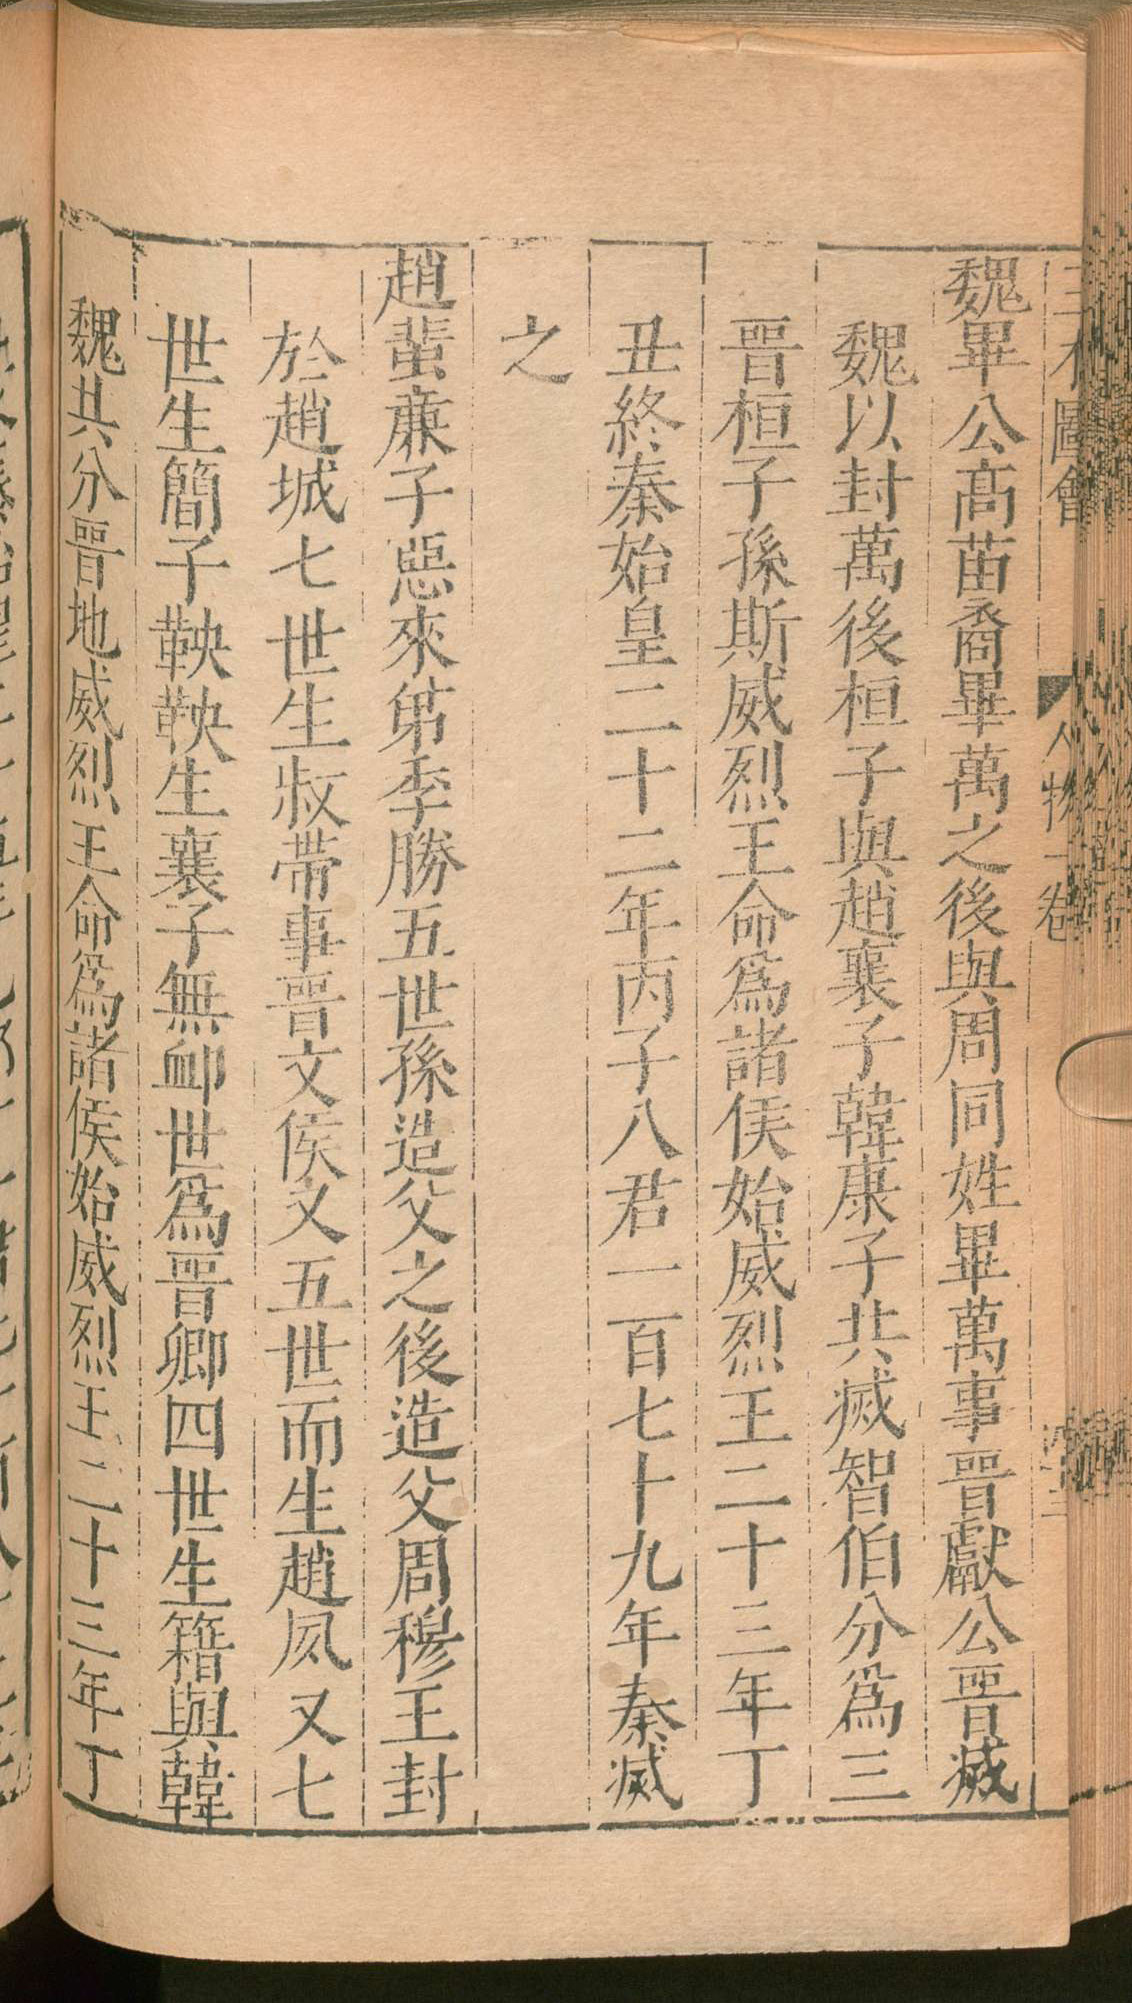 魏畢公高苗裔畢萬之後與周同姓畢萬事晉獻公晉滅
魏以封萬後桓子與趙襄子韓康子共滅智伯分爲三
晉桓子孫斯威烈王命爲諸侯始威烈王二十三年丁
丑終秦始皇二十二年丙子八君一百七十九年秦滅
之
趙蜚廉子惡來弟季勝五世孫造父之後造父周穆王封
於趙城七世生叔帶事晉文侯又五世而生趙夙又七
世生簡子鞅鞅生襄子無卹世爲晉卿四世生籍與韓
魏共分晉地威烈王命爲諸侯始威烈王二十三年丁